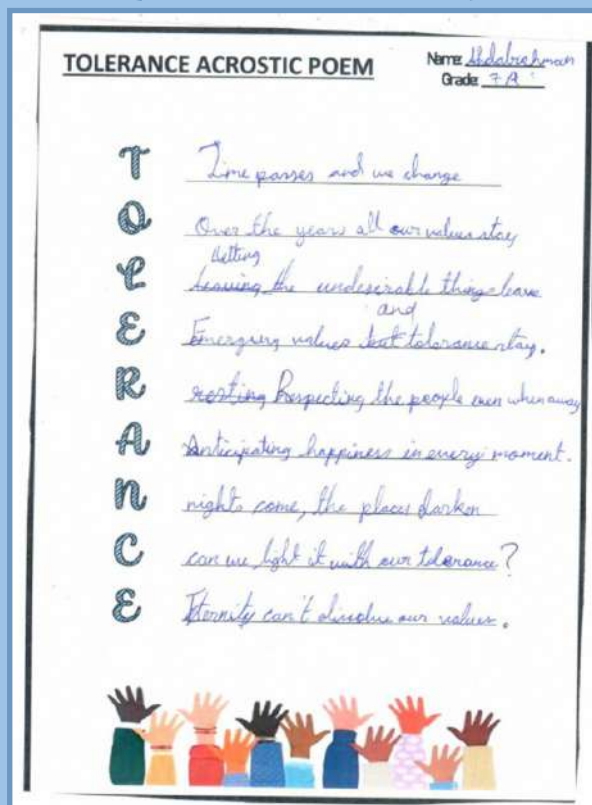 TOLERANCE ACROSTIC POEM
Name: Abdalrehman
Grade: 7A
T Time passes and we change
O Over the years all our values stay
letting
L Leaving the undesirable things leave
and
E Emerging values but tolerance stay.
R resting Respecting the people even when away
A Anticipating happiness in every moment.
N nights come, the places darken
C can we light it with our tolerance?
E Eternity can't dissolve our values.